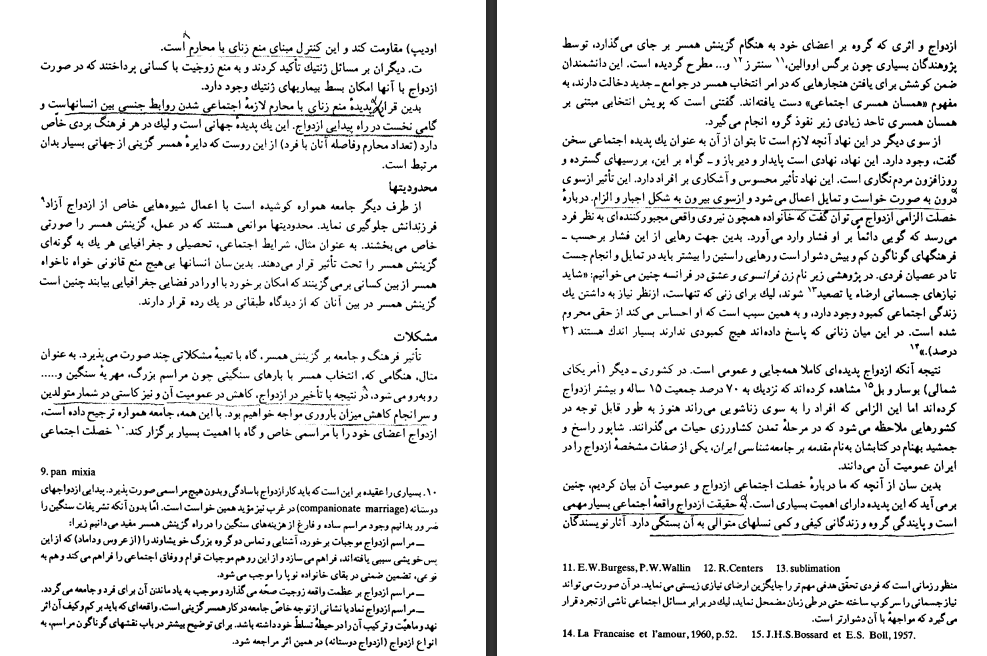 اودیپ) مقاومت کند و این کنترل مبنای منع زنای با محارم است.
ت. دیگران بر مسائل ژنتیک تأکید کردند و به منع زوجیت با کسانی پرداختند که در صورت
ازدواج با آنها امکان بسط بیماریهای ژنتیک وجود دارد.
بدین قرار پدیدهٔ منع زنای با محارم لازمهٔ اجتماعی شدن روابط جنسی بین انسانهاست و
گامی نخست در راه پیدایی ازدواج. این یك پدیدهٔ جهانی است و لیك در هر فرهنگ بردی خاص
دارد (تعداد محارم وفاصله آنان با فرد) از این روست که دایرهٔ همسر گزینی از جهاتی بسیار بدان
مرتبط است.
محدودیتها
از طرف دیگر جامعه همواره کوشیده است با اعمال شیوه‌هایی خاص از ازدواج آزاد۹
فرزندانش جلوگیری نماید. محدودیتها موانعی هستند که در عمل، گزینش همسر را صورتی
خاص می‌بخشند. به عنوان مثال، شرایط اجتماعی، تحصیلی و جغرافیایی هر یك به گونه‌ای
گزینش همسر را تحت تأثیر قرار می‌دهند. بدین‌سان انسانها بی‌هیچ منع قانونی خواه ناخواه
همسر از بین کسانی برمی‌گزینند که امکان برخورد با او را در فضایی جغرافیایی بیابند چنین است
گزینش همسر در بین آنان که از دیدگاه طبقاتی در یك رده قرار دارند.
مشکلات
تأثیر فرهنگ و جامعه بر گزینش همسر، گاه با تعبیهٔ مشکلاتی چند صورت می‌پذیرد. به عنوان
مثال، هنگامی که، انتخاب همسر با بارهای سنگینی چون مراسم بزرگ، مهریهٔ سنگین و.....
روبه‌رو می‌شود، در نتیجه با تأخیر در ازدواج، کاهش در عمومیت آن و نیز کاستی در شمار متولدین
و سرانجام کاهش میزان باروری مواجه خواهیم بود. با این همه، جامعه همواره ترجیح داده است،
ازدواج اعضای خود را با مراسمی خاص و گاه با اهمیت بسیار برگزار کند.۱۰ خصلت اجتماعی
9. pan mixia
۱۰. بسیاری را عقیده بر این است که باید کار ازدواج باسادگی وبدون هیچ مراسمی صورت پذیرد. پیدایی ازدواجهای
دوستانه (companionate marriage) در غرب نیز مؤید همین خواست است. امّا بدون آنکه تشریفات سنگین را
ضرور بدانیم وجود مراسم ساده و فارغ از هزینه‌های سنگین را در راه گزینش همسر مفید می‌دانیم زیرا:
ــ مراسم ازدواج موجبات برخورد، آشنایی و تماس دو گروه بزرگ خویشاوند را (از عروس وداماد) که از این
پس خویشی سببی یافته‌اند، فراهم می‌سازد و از این رو هم موجبات قوام و وفاق اجتماعی را فراهم می‌کند و هم به
نوعی، تضمین ضمنی در بقای خانواده نوپا را موجب می‌شود.
ــ مراسم ازدواج بر عظمت واقعه زوجیت صحّه می‌گذارد و موجب به یاد ماندن آن برای فرد و جامعه می‌گردد.
ــ مراسم ازدواج نماد یا نشانی از توجه خاصّ جامعه در کار همسر گزینی است. واقعه‌ای که باید بر کم وکیف آن اثر
نهد وماهیّت و ترکیب آن را در حیطهٔ تسلط خود داشته باشد. برای توضیح بیشتر در باب نقشهای گوناگون مراسم، به
انواع ازدواج (ازدواج دوستانه) در همین اثر مراجعه شود.
ازدواج و اثری که گروه بر اعضای خود به هنگام گزینش همسر بر جای می‌گذارد، توسط
پژوهندگان بسیاری چون برگس اووالین،۱۱ سنترز۱۲ و... مطرح گردیده است. این دانشمندان
ضمن کوشش برای یافتن هنجارهایی که در امر انتخاب همسر در جوامع ـ جدید دخالت دارند، به
مفهوم «همسان همسری اجتماعی» دست یافته‌اند. گفتنی است که پویش انتخابی مبتنی بر
همسان همسری تاحد زیادی زیر نفوذ گروه انجام می‌گیرد.
از سوی دیگر در این نهاد آنچه لازم است تا بتوان از آن به عنوان یك پدیده اجتماعی سخن
گفت، وجود دارد. این نهاد، نهادی است پایدار و دیر باز و ـ گواه بر این، بررسیهای گسترده و
روزافزون مردم نگاری است. این نهاد تأثیر محسوس و آشکاری بر افراد دارد. این تأثیر ازسوی
درون به صورت خواست و تمایل اعمال می‌شود و ازسوی بیرون به شکل اجبار و الزام. دربارهٔ
خصلت الزامی ازدواج می‌توان گفت که خانواده همچون نیروی واقعی مجبورکننده‌ای به نظر فرد
می‌رسد که گویی دائماً بر او فشار وارد می‌آورد. بدین جهت رهایی از این فشار برحسب ـ
فرهنگهای گوناگون کم و بیش دشوار است و رهایی راستین را بیشتر باید در تمایل و انجام جست
تا در عصیان فردی. در پژوهشی زیر نام زن فرانسوی و عشق در فرانسه چنین می‌خوانیم: «شاید
نیازهای جسمانی ارضاء یا تصعید۱۳ شوند، لیك برای زنی که تنهاست، ازنظر نیاز به داشتن یك
زندگی اجتماعی کمبود وجود دارد، و به همین سبب است که او احساس می‌کند از حقی محروم
شده است. در این میان زنانی که پاسخ داده‌اند هیچ کمبودی ندارند بسیار اندك هستند (۳
درصد).»۱۴
نتیجه آنکه ازدواج پدیده‌ای کاملا همه‌جایی و عمومی است. در کشوری ـ دیگر (آمریکای
شمالی) بوسار و بل۱۵ مشاهده کرده‌اند که نزدیك به ۷۰ درصد جمعیت ۱۵ ساله و بیشتر ازدواج
کرده‌اند اما این الزامی که افراد را به سوی زناشویی می‌راند هنوز به طور قابل توجه در
کشورهایی ملاحظه می‌شود که در مرحلهٔ تمدن کشاورزی حیات می‌گذرانند. شاپور راسخ و
جمشید بهنام در کتابشان به‌نام مقدمه بر جامعه‌شناسی ایران، یکی از صفات مشخصهٔ ازدواج را در
ایران عمومیت آن می‌دانند.
بدین سان از آنچه که ما دربارهٔ خصلت اجتماعی ازدواج و عمومیت آن بیان کردیم، چنین
برمی آید که این پدیده دارای اهمیت بسیاری است. به حقیقت ازدواج واقعهٔ اجتماعی بسیار مهمی
است و پایندگی گروه و زندگانی کیفی و کمی نسلهای متوالی به آن بستگی دارد. آثار نویسندگان
11. E.W.Burgess, P.W.Wallin 12. R.Centers 13. sublimation
منظور زمانی است که فردی تحقّق هدفی مهم‌تر را جایگزین ارضای نیازی زیستی می‌نماید. در آن صورت می‌تواند
نیاز جسمانی را سرکوب ساخته حتی در طی زمان مضمحل نماید، لیك در برابر مسائل اجتماعی ناشی از تجرد قرار
می‌گیرد که مواجههٔ با آن دشوارتر است.
14. La Francaise et l'amour, 1960, p.52. 15. J.H.S.Bossard et E.S. Boll, 1957.